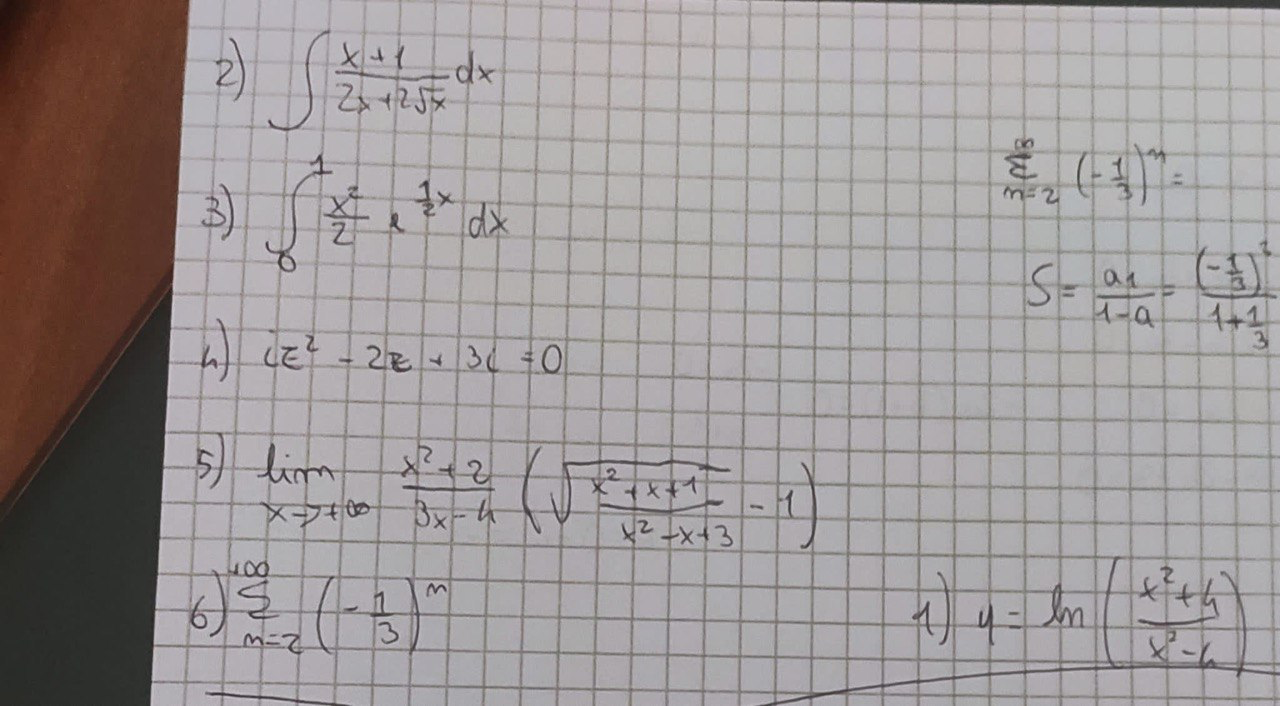 2) ∫ (x+1)/(2x+2√x) dx
3) ∫₀¹ x²/2 e^(1/2 x) dx
4) iz² - 2z + 3i = 0
5) lim x→+∞ (x²+2)/(3x-4) (√((x²+x+1)/(x²-x+3)) - 1)
6) Σ n=2 +∞ (-1/3)^n
Σ n=2 ∞ (-1/3)^n =
S = a1/(1-a) = (-1/3)²/(1+1/3)
1) y = ln((x²+4)/(x²-4))